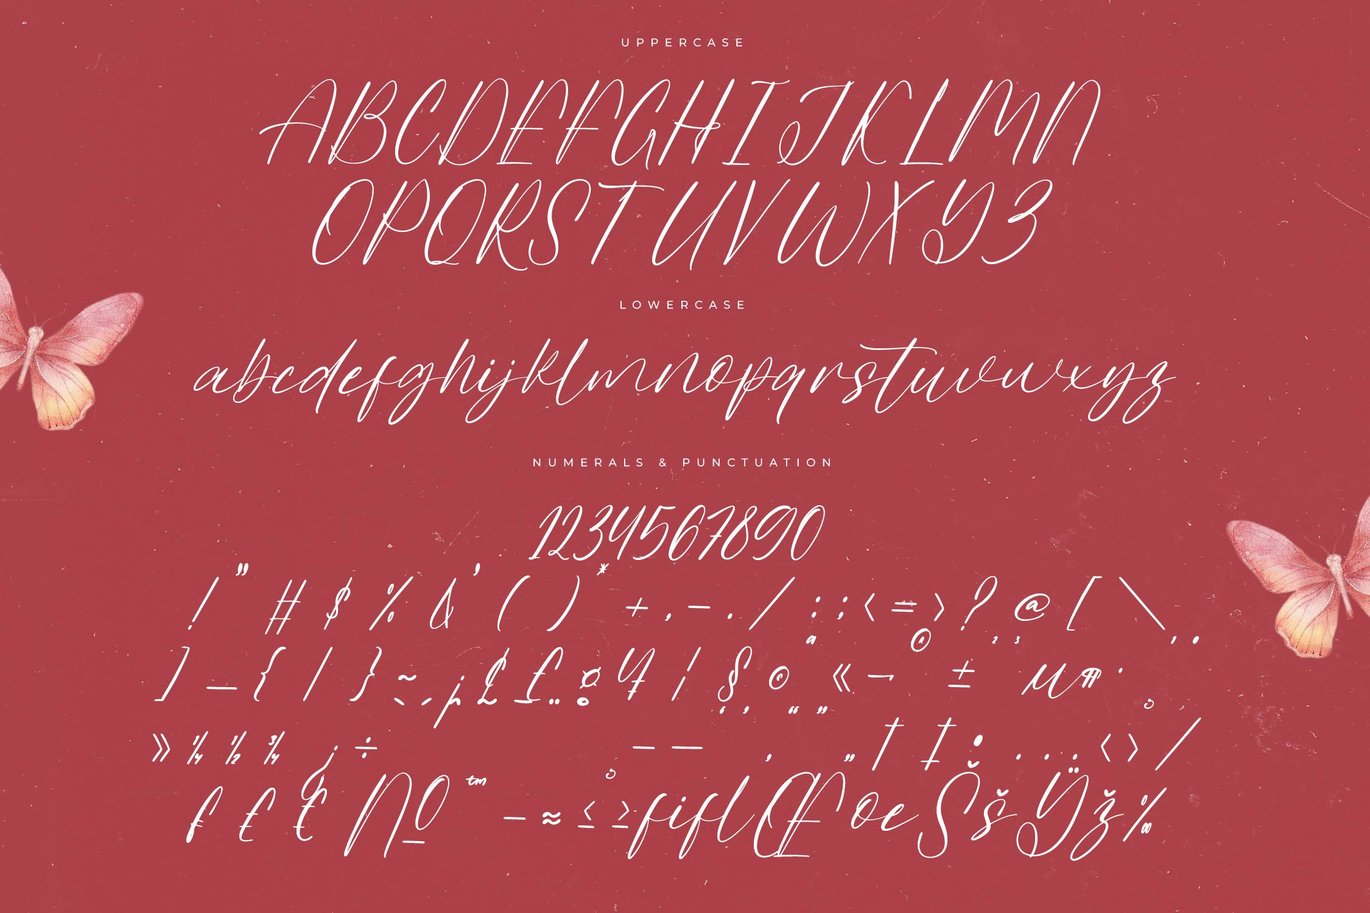 UPPERCASE
ABCDEFGHIJKLMN
OPQRSTUVWXYZ
LOWERCASE
abcdefghijklmnopqrstuvwxyz
NUMERALS & PUNCTUATION
1234567890
! " # $ % & ' ( ) * + , - . / : ; < = > ? @ [ \
] _ { | } ~ ¡ ¢ £ ¤ ¥ ¦ § © ª « ¬ ® ± ² ³ µ ¶ ·
» ¼ ½ ¾ ¿ ÷ – — ‘ ’ ‚ “ ” „ † ‡ • … ‹ › ⁄
₣ ₤ € № ™ − ≈ ≤ ≥ fi fl Œ œ Š š Ÿ ž ‰